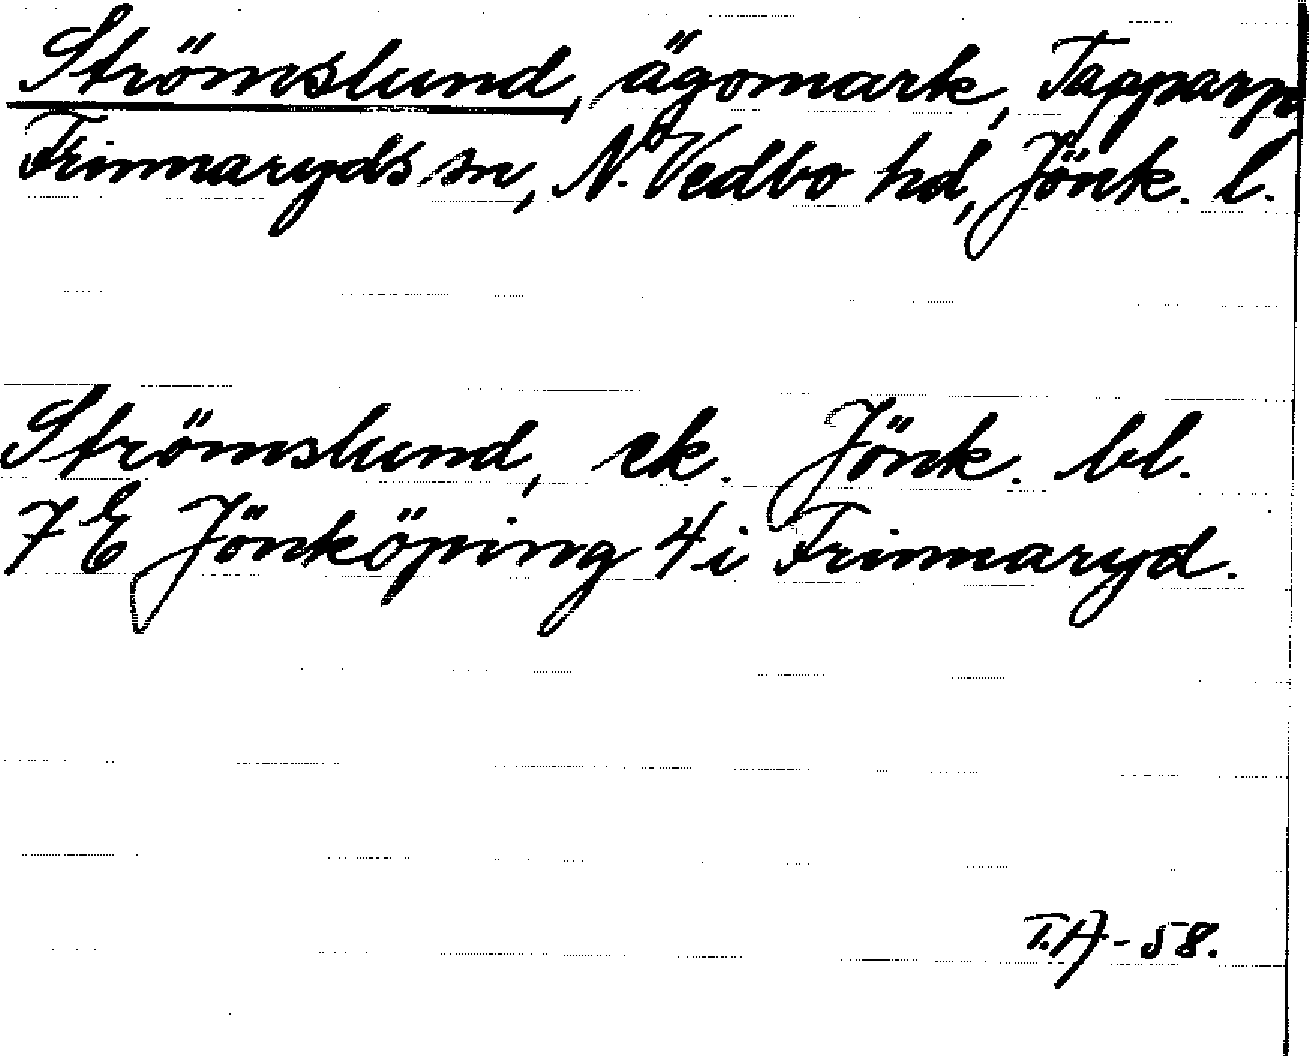 Strömslund, ägomark, Tapparp,
Frinnaryds sn, N. Vedbo hd, Jönk. l.
Strömslund, ek. Jönk. bl.
7 E Jönköping 4 i Frinnaryd.
T.A -58.